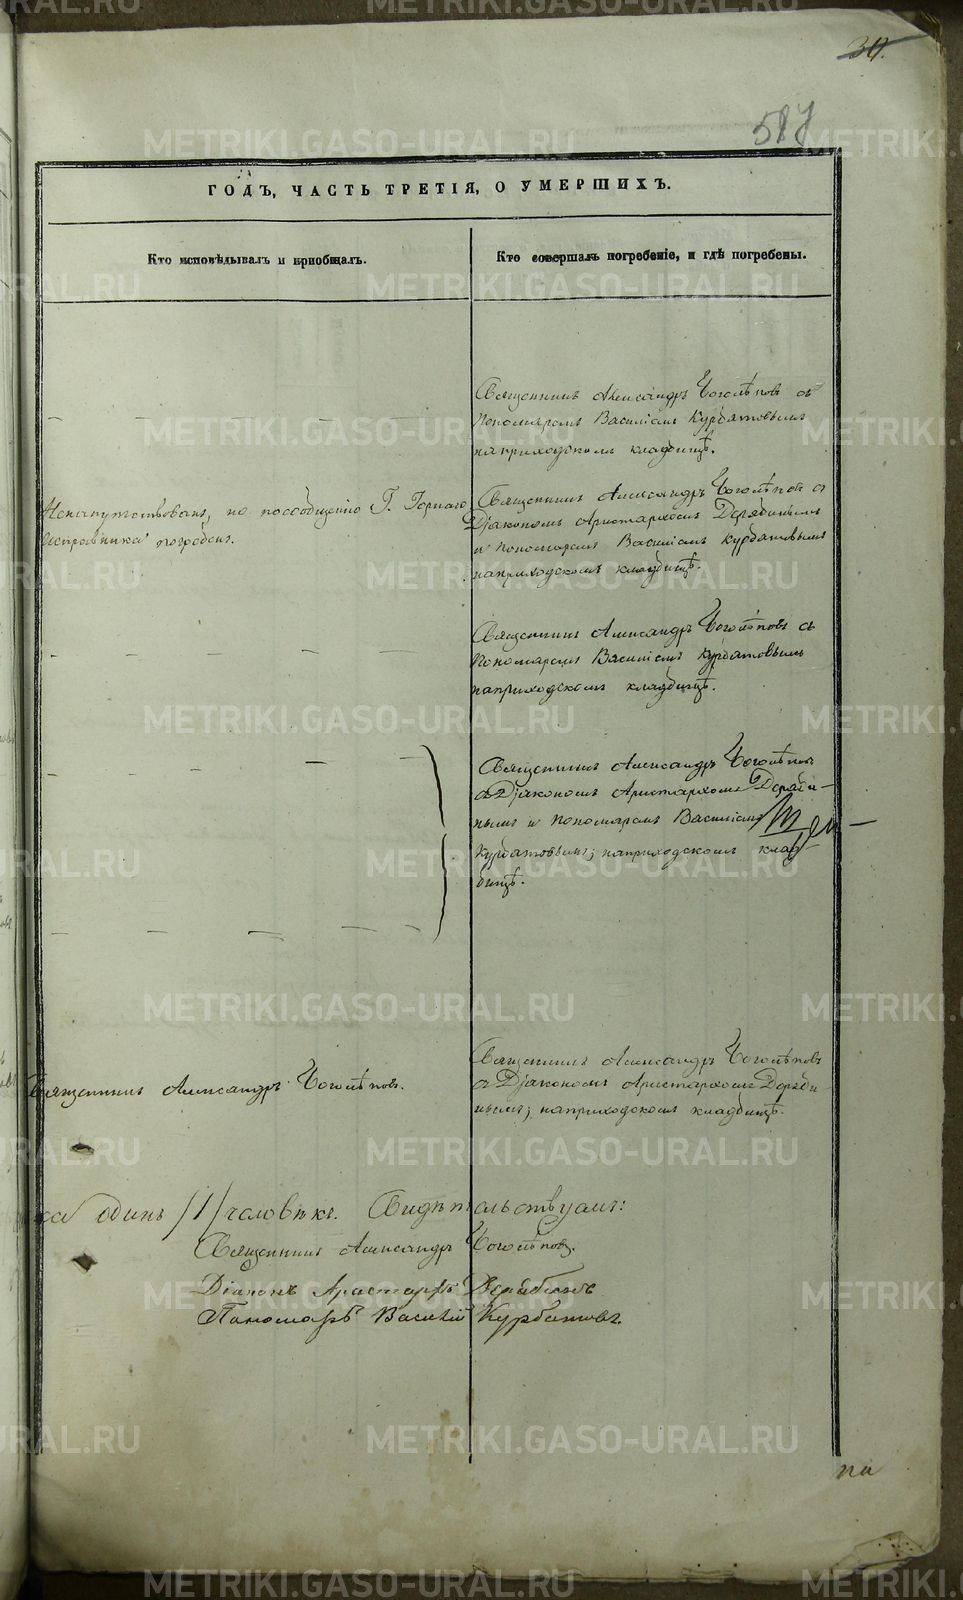 30.
587
ГОДЪ, ЧАСТЬ ТРЕТІЯ, О УМЕРШИХЪ.
Кто исповѣдывалъ и пріобщалъ.
Кто совершалъ погребеніе, и гдѣ погребены.
Священникъ Александръ Боголѣповъ съ
Пономаремъ Василіемъ Курбатовымъ
наприходскомъ кладбищѣ.
Ненапутствованъ, по посообщенію Г. Горнаго
Исправника погребенъ.
Священникъ Александръ Боголѣповъ съ
Діакономъ Аристархомъ Дерябинымъ
и Пономаремъ Василіемъ Курбатовымъ
наприходскомъ кладбищѣ.
Священникъ Александръ Боголѣповъ съ
Пономаремъ Василіемъ Курбатовымъ
наприходскомъ кладбищѣ.
Священникъ Александръ Боголѣповъ
съ Діакономъ Аристархомъ Деряби-
нымъ и Пономаремъ Василіемъ
Курбатовымъ; наприходскомъ клад-
бищѣ.
Священникъ Александръ Боголѣповъ.
Священникъ Александръ Боголѣповъ
съ Діакономъ Аристархомъ Деряби-
нымъ; наприходскомъ кладбищѣ.
одинъ /1/ человѣкъ. Свидѣтельствуемъ:
Священникъ Александръ Боголѣповъ.
Діаконъ Аристархъ Дерябинъ
Пономарь Василій Курбатовъ.
METRIKI.GASO-URAL.RU